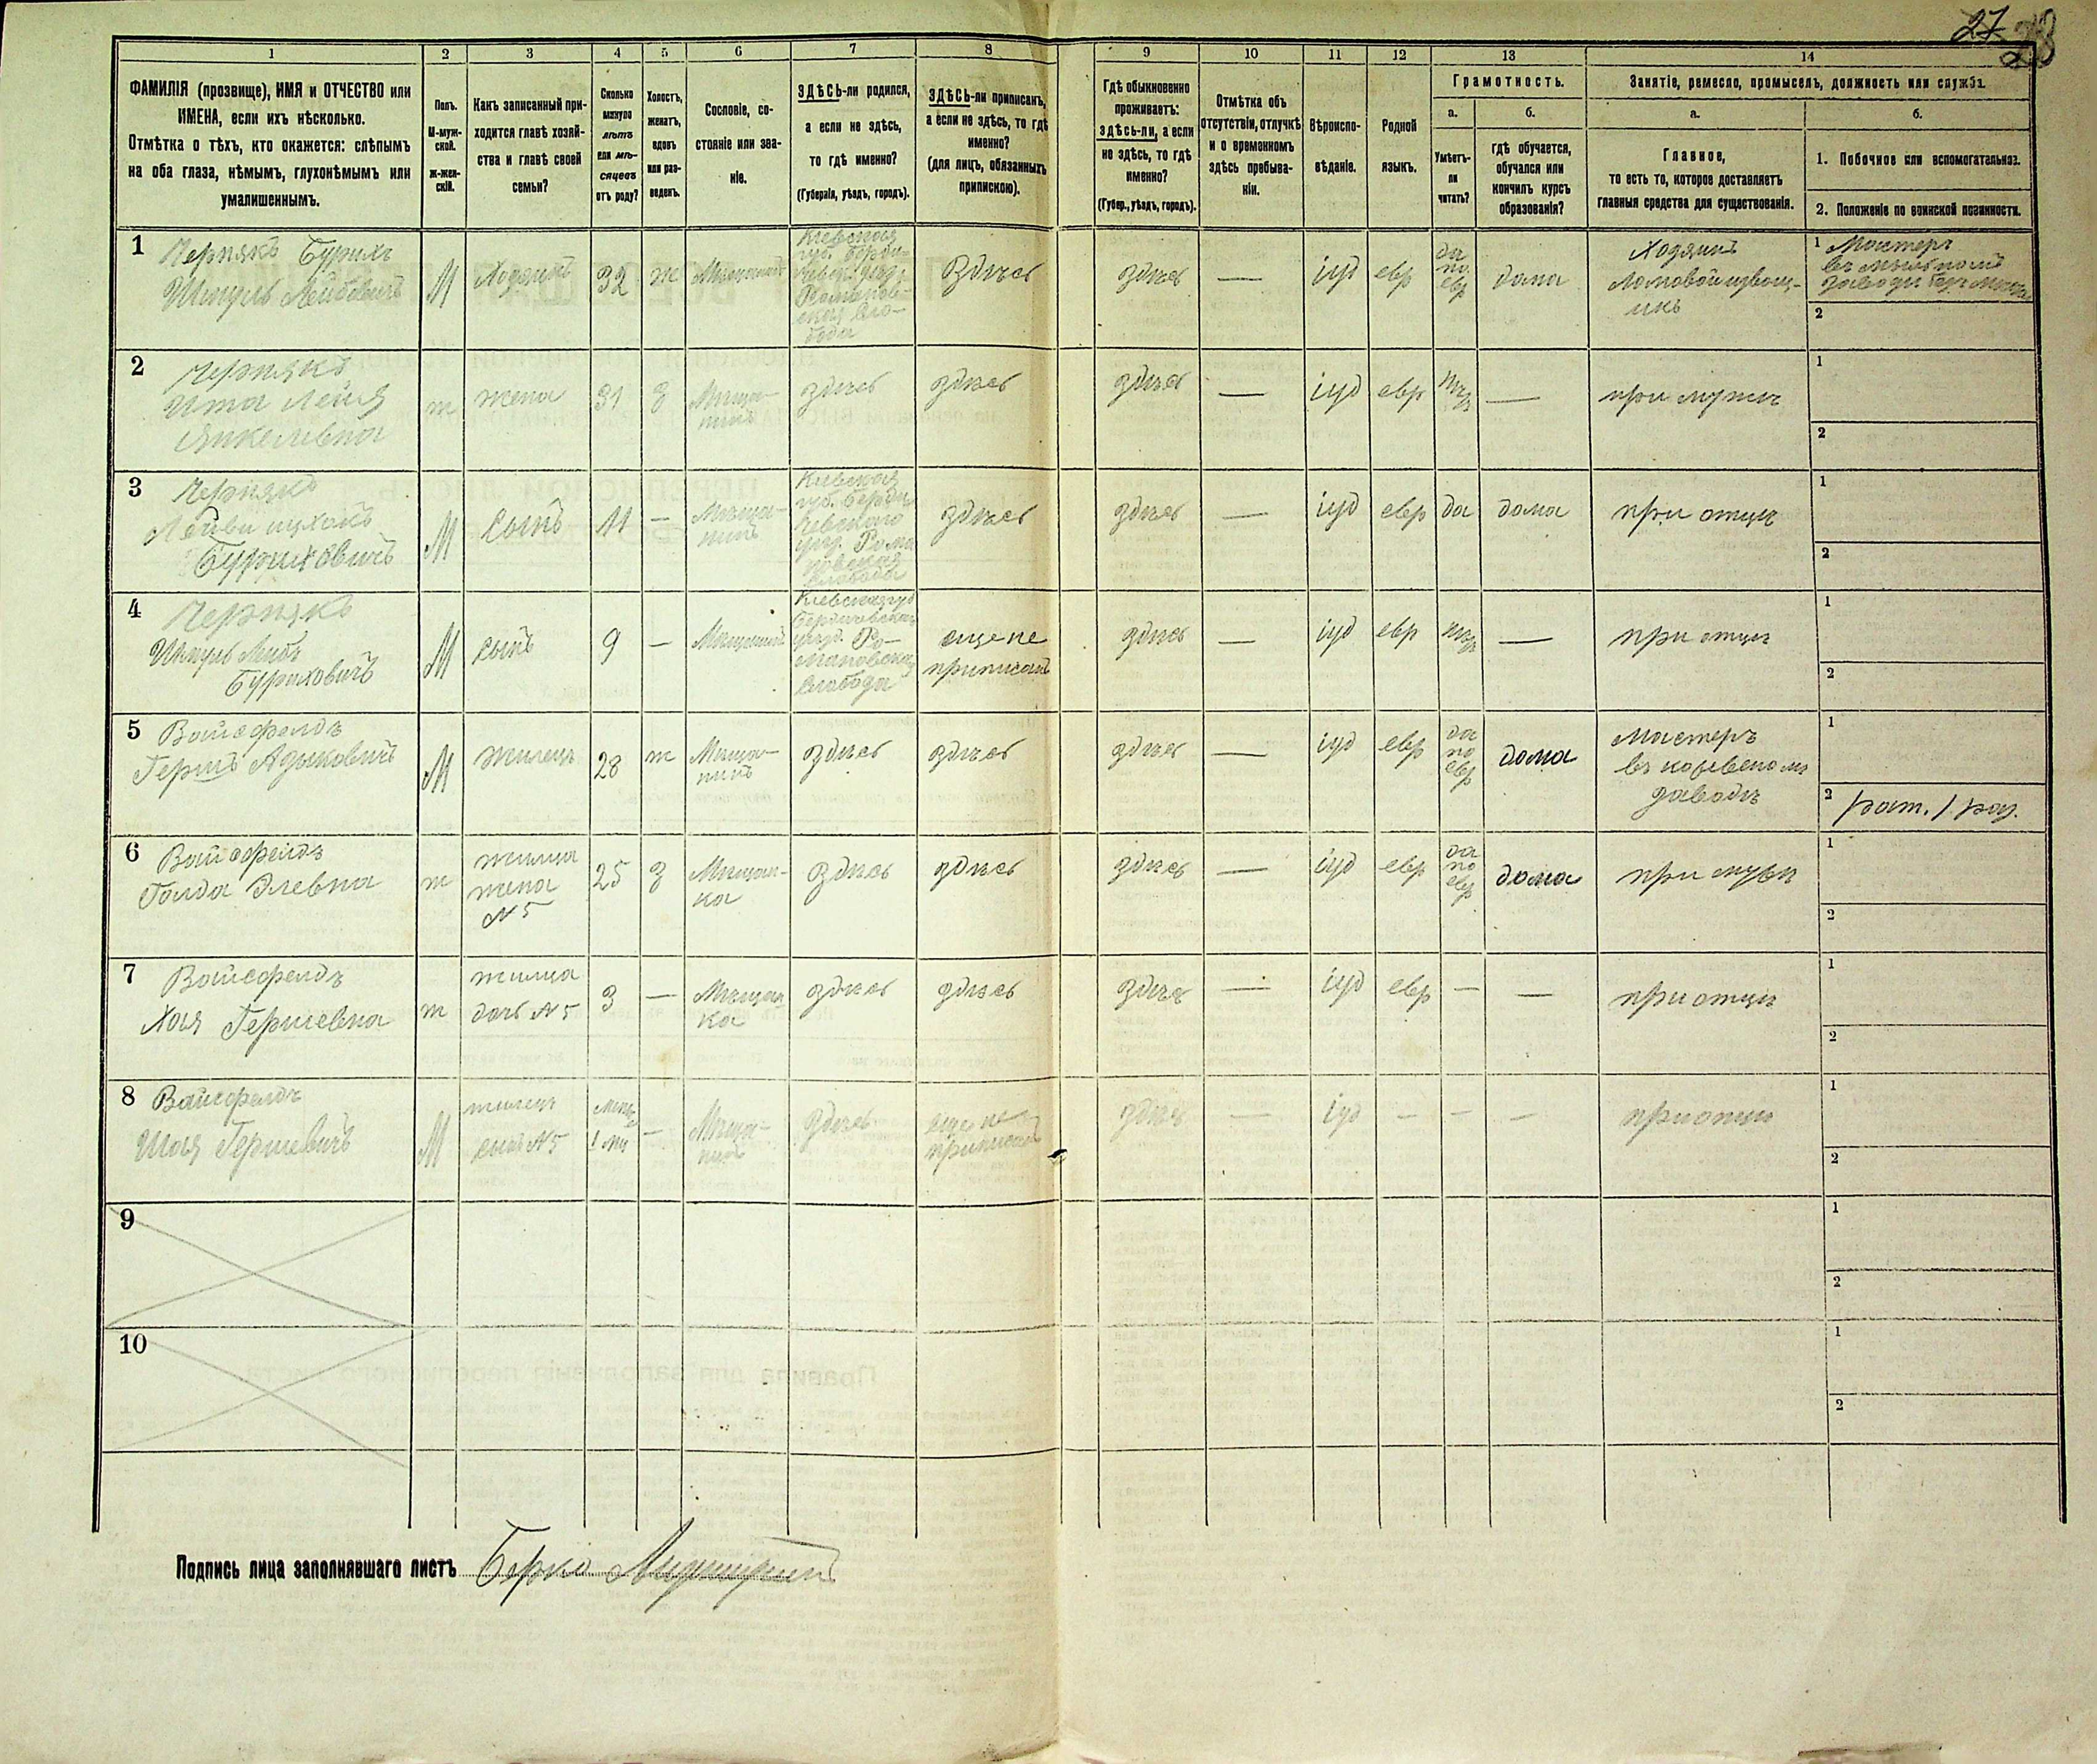 27 28
1 2 3 4 5 6 7 8 9 10 11 12 13 14
ФАМИЛІЯ (прозвище), ИМЯ и ОТЧЕСТВО или
ИМЕНА, если ихъ нѣсколько.
Отмѣтка о тѣхъ, кто окажется: слѣпымъ
на оба глаза, нѣмымъ, глухонѣмымъ или
умалишеннымъ.
Полъ.
М-муж-
ской.
ж-жен-
скій.
Какъ записанный при-
ходится главѣ хозяй-
ства и главѣ своей
семьи?
Сколько
минуло
лѣтъ
или мѣ-
сяцевъ
отъ роду?
Холостъ,
женатъ,
вдовъ
или раз-
веденъ.
Сословіе, со-
стояніе или зва-
ніе.
ЗДѢСЬ-ли родился,
а если не здѣсь,
то гдѣ именно?
(Губернія, уѣздъ, городъ).
ЗДѢСЬ-ли приписанъ,
а если не здѣсь, то гдѣ
именно?
(для лицъ, обязанныхъ
припискою).
Гдѣ обыкновенно
проживаетъ:
здѣсь-ли, а если
не здѣсь, то гдѣ
именно?
(Губер., уѣздъ, городъ).
Отмѣтка объ
отсутствіи, отлучкѣ
и о временномъ
здѣсь пребыва-
ніи.
Вѣроиспо-
вѣданіе.
Родной
языкъ.
Грамотность.
а.
Умѣетъ-
ли
читать?
б.
гдѣ обучается,
обучался или
кончилъ курсъ
образованія?
Занятіе, ремесло, промыселъ, должность или служба.
а.
Главное,
то есть то, которое доставляетъ
главныя средства для существованія.
б.
1. Побочное или вспомогательное.
2. Положеніе по воинской повинности.
1
Чернякъ Бурихъ
Шмуль Лейбовичъ
М
Хозяинъ
32
ж
Мѣщанинъ
Кіевская
губ. Берди-
чевск. уѣзд.
Романов-
ская Сло-
бода
Здѣсь
здѣсь
—
іуд
евр
да
по
евр
дома
Хозяинъ
Ломовой извощ-
икъ
1 Мастеръ
въ мыльномъ
заводѣ
2
2
Чернякъ
Ита Лейя
Янкелевна
ж
жена
31
з
Мѣща-
нинъ
здѣсь
здѣсь
здѣсь
—
іуд
евр
нѣт
—
при мужѣ
1
2
3
Чернякъ
Буриховичъ
М
Сынъ
11
—
Мѣща-
нинъ
Кіевская
губ. Берди-
чевского
уѣзд. Рома
новская
слобода
здѣсь
здѣсь
—
іуд
евр
да
дома
при отцѣ
1
2
4
Чернякъ
Шмуль Лейбъ
Буриховичъ
М
сынъ
9
—
Мѣщанинъ
Кіевская губ
Бердичевская
уѣзд. Ро-
мановская
слобода
еще не
приписанъ
здѣсь
—
іуд
евр
нѣт
—
при отцѣ
1
2
5
Вайсфелдъ
Гершъ
М
жилецъ
28
ж
Мѣща-
нинъ
здѣсь
здѣсь
здѣсь
—
іуд
евр
да
по
евр
дома
Мастеръ
въ кожевеномъ
заводѣ
1
2 рат. 1 раз.
6
Вайсфелдъ
Голда Элевна
ж
жилица
жена
№ 5
25
з
Мѣщан-
ка
здѣсь
здѣсь
здѣсь
—
іуд
евр
да
по
евр
дома
при мужѣ
1
2
7
Вайсфелдъ
Хая Гершевна
ж
жилица
дочь № 5
3
—
Мѣщан
ка
здѣсь
здѣсь
здѣсь
—
іуд
евр
—
—
при отцѣ
1
2
8
Вайсфелдъ
Шая Гершевичъ
М
жилецъ
сынъ № 5
—
Мѣща-
нинъ
здѣсь
еще не
приписанъ
здѣсь
—
іуд
—
—
—
при отцѣ
1
2
9
1
2
10
1
2
Подпись лица заполнявшаго листъ Берко